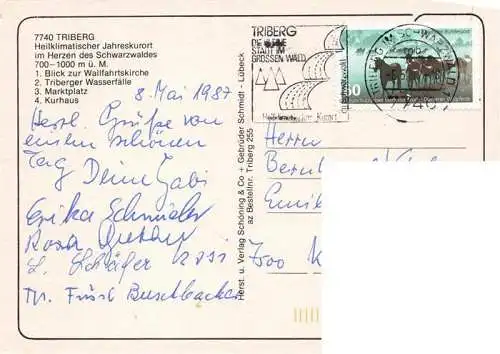 7740 TRIBERG
Heilklimatischer Jahreskurort
im Herzen des Schwarzwaldes
700-1000 m ü. M.
1. Blick zur Wallfahrtskirche
2. Triberger Wasserfälle
3. Marktplatz
4. Kurhaus
8. Mai 1987
Herzl. Grüße von
einem schönen
Tag Deine Gabi
Erika Schmieder
Rosa
L. Schäfer
Herst. u. Verlag Schöning & Co + Gebrüder Schmidt - Lübeck
az Bestellnr. Triberg 255
TRIBERG
DIE KLEINE
STADT IM
GROSSEN WALD
Heilklimatischer Kurort
TRIBERG IM SCHWARZWALD
60
Herrn
7500 K